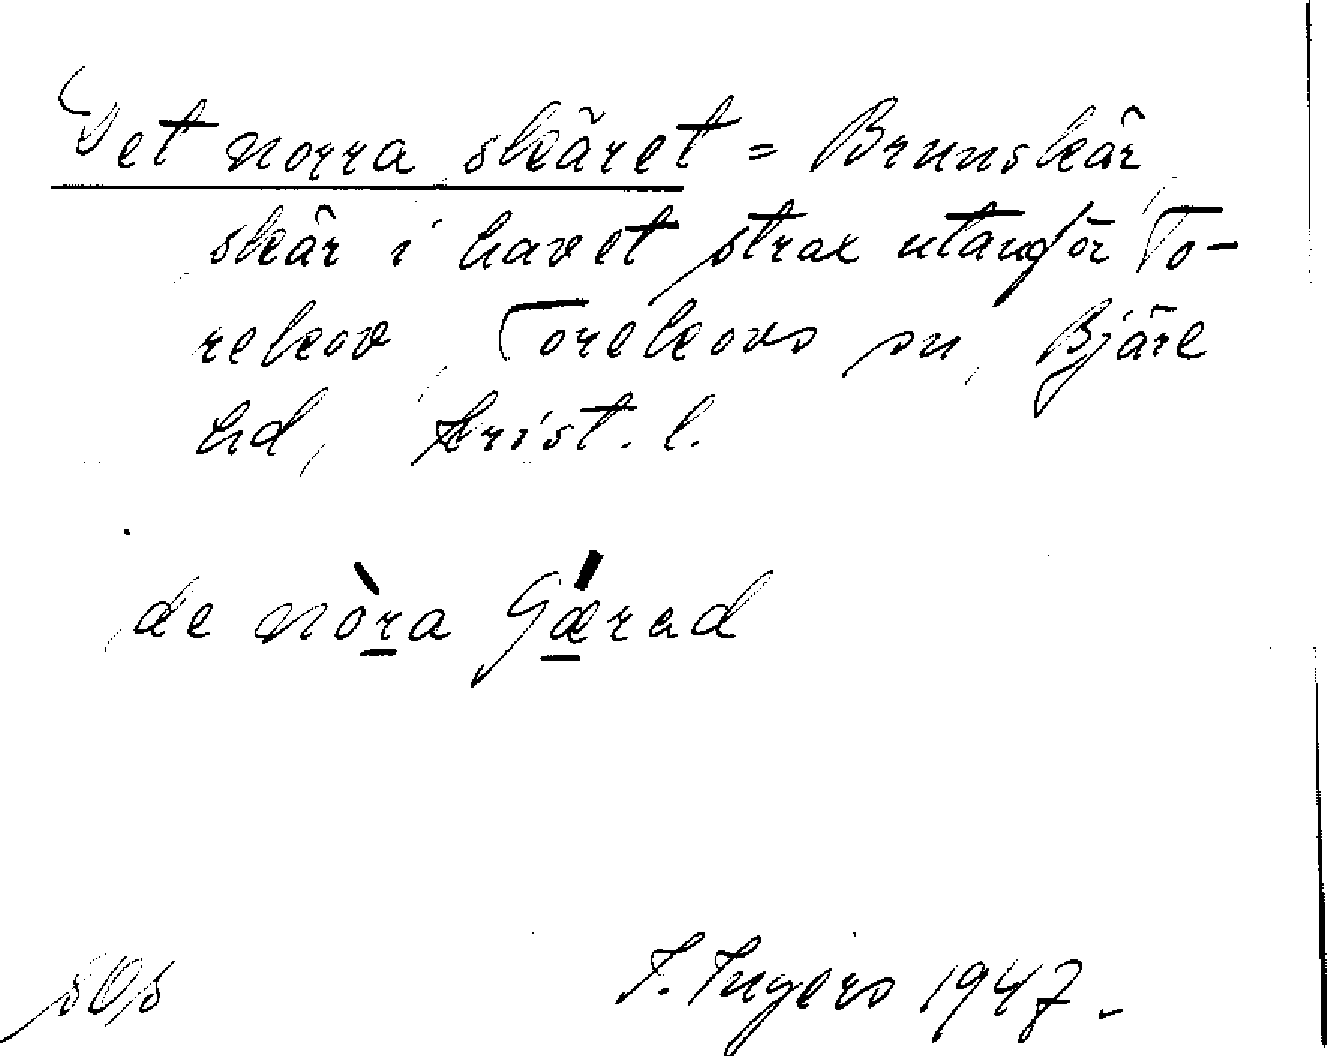 Det norra skäret = Brunskär,
skär i havet strax utanför To-
rekov, Torekovs sn, Bjäre
hd, Krist. l.
de nòra ʃǽrəd
sOs
I. Ingers 1947.